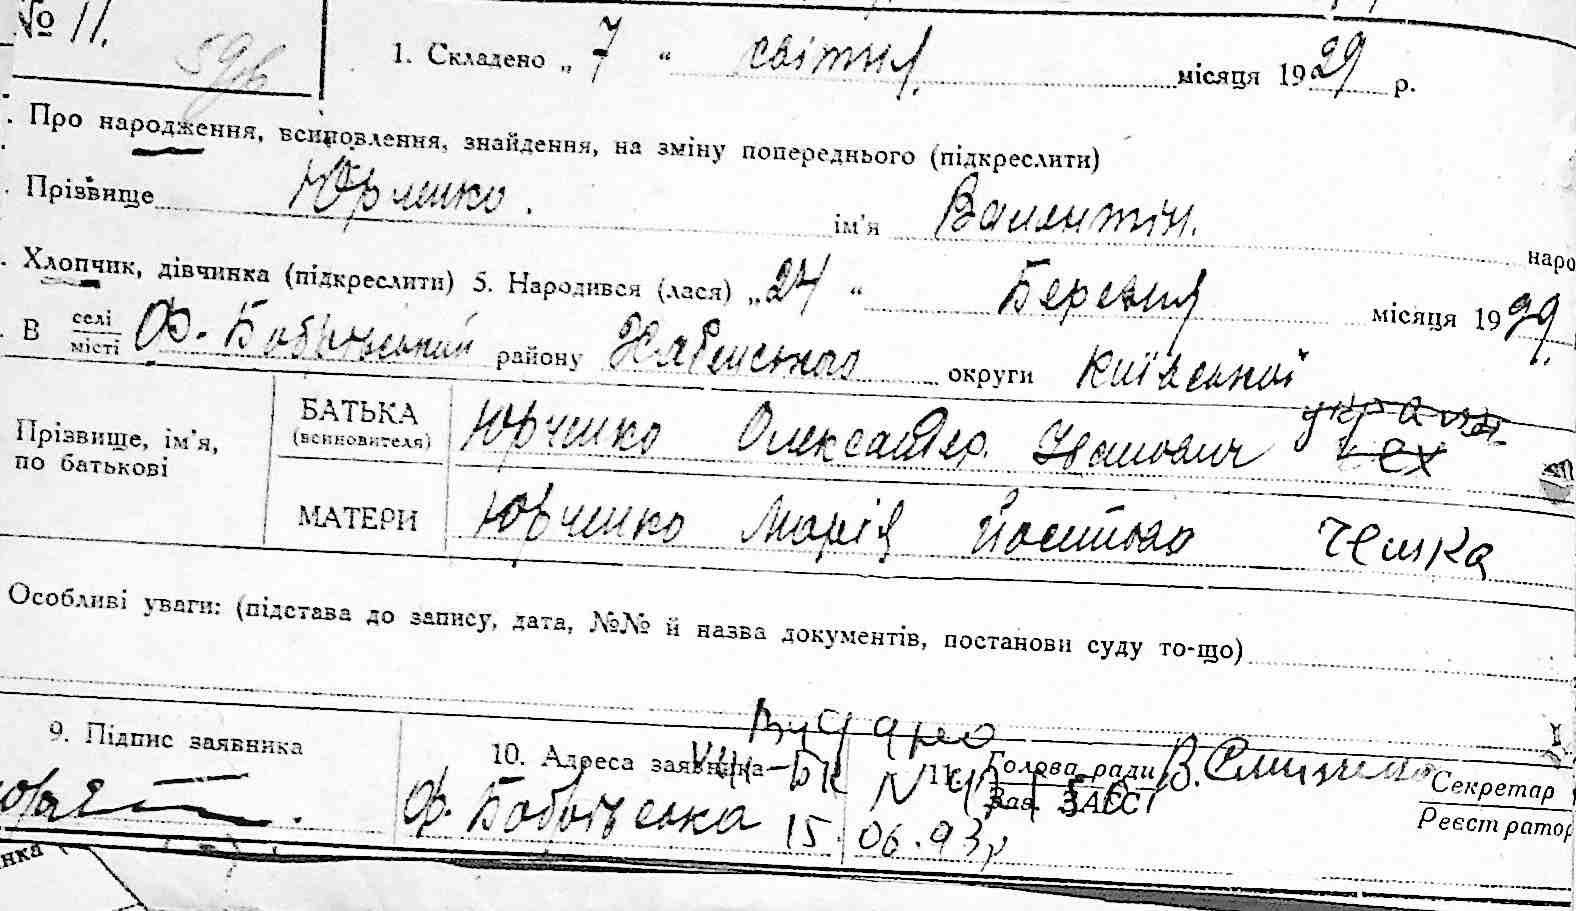 № 11.
59в
1. Складено „ 7 “ світня місяця 1929 р.
Про народження, всиновлення, знайдення, на зміну попереднього (підкреслити)
Прізвище Юрченко. ім'я Валентін. наро
Хлопчик, дівчинка (підкреслити) 5. Народився (лася) „ 24 “ Березня місяця 1929.
В селі/місті Ф. Бобрівський району Хабенського округи Київської
Прізвище, ім'я, по батькові
БАТЬКА (всиновителя) Юрченко Олександер. Іванович чех
МАТЕРИ Юрченко Марія Йосипівна Чешка
Особливі уваги: (підстава до запису, дата, №№ й назва документів, постанови суду то-що)
9. Підпис заявника
10. Адреса заявника
Ф. Бобрівська
11. Голова ради
Зав. ЗАГСТ
Видано
VIII-БК N
15.06.93р
Секретар
Реєстратор
нка